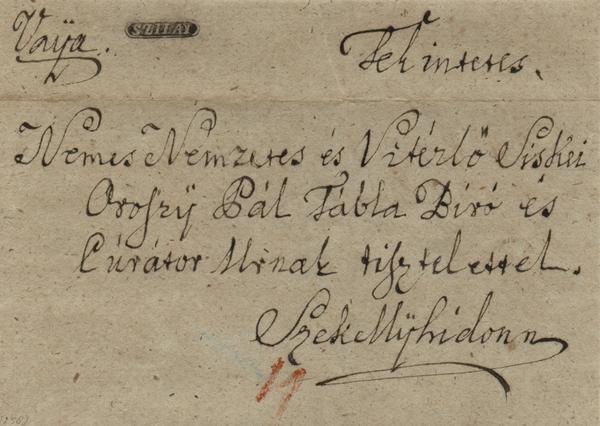 Vaÿa. SZILAY Tekintetes.
Nemes Nemzetes és Vitézlö Siskei
Oroszÿ Pál Tábla Biró és
Cúrátor Urnak tisztelettel.
Szek Mÿhidonn
14